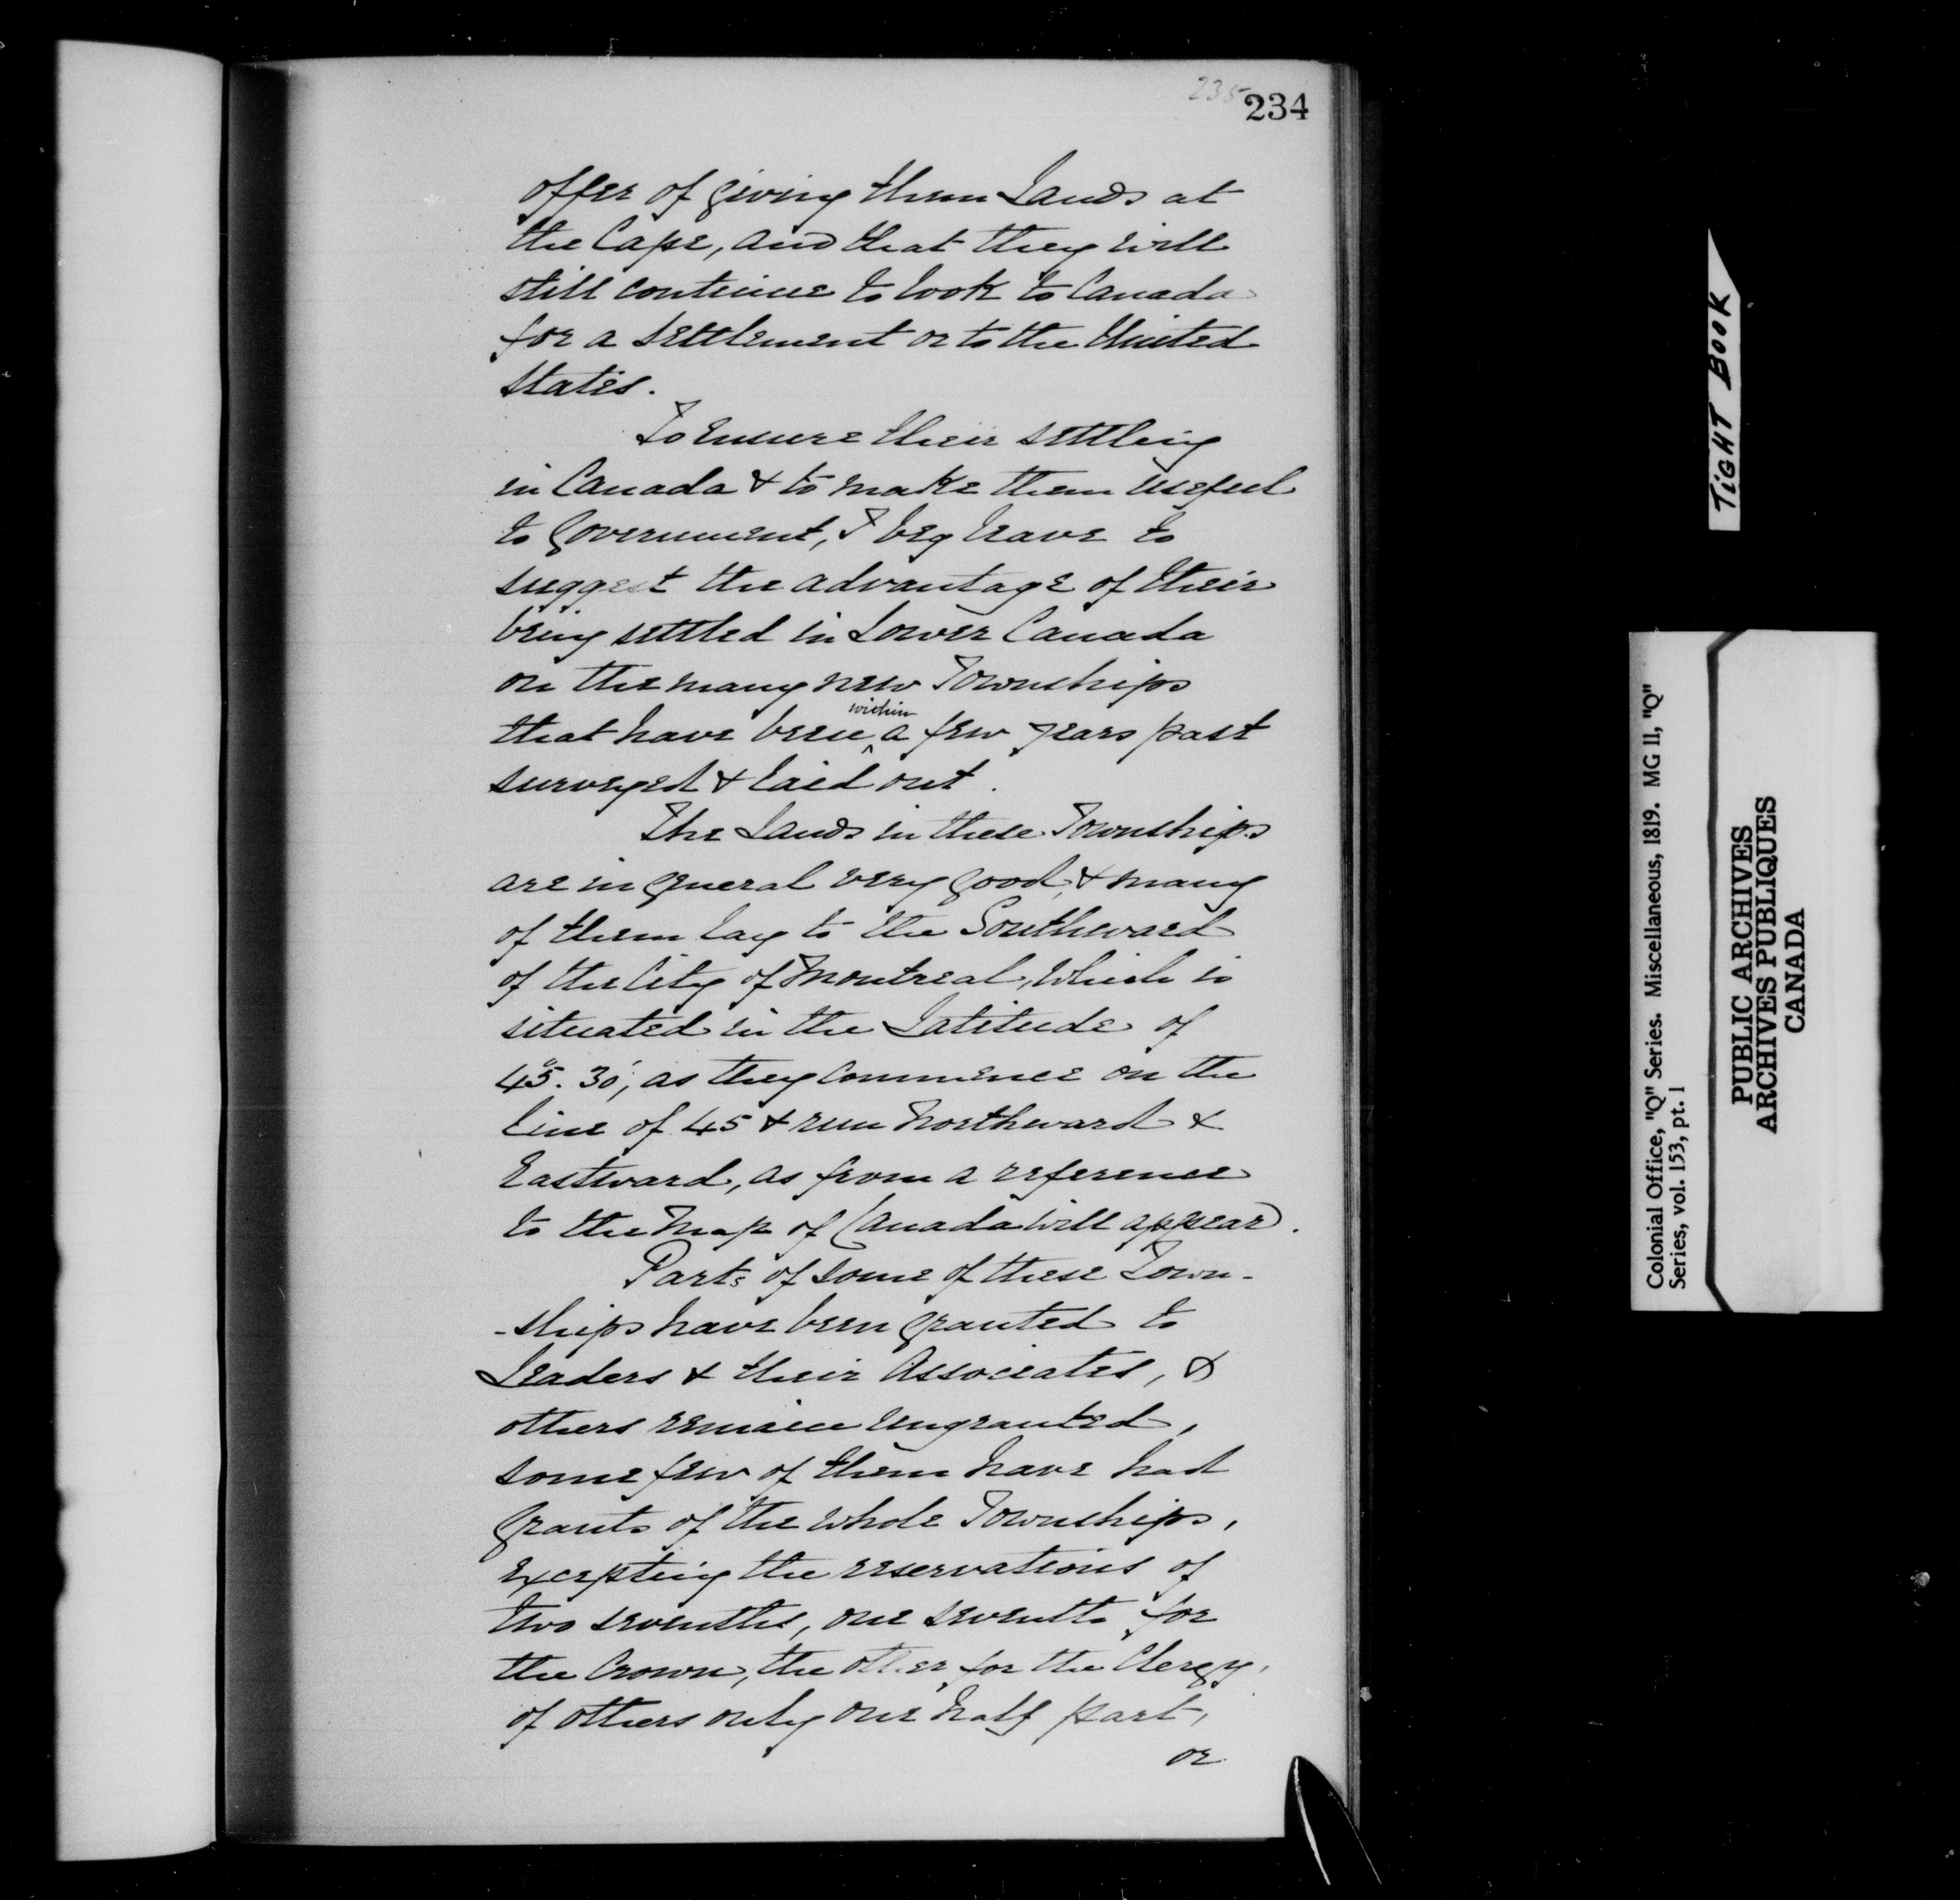 235
234
offer of giving them Lands at
the Cape, and that they will
still continue to look to Canada
for a settlement or to the United
States.
To ensure their settling
in Canada & to make them useful
to Government, I beg leave to
suggest the advantage of their
being settled in Lower Canada
on the many new Townships
that have been ^within a few years past
surveyed & laid out.
The Lands in these Townships
are in general very good, & many
of them lay to the Southward
of the City of Montreal, which is
situated in the Latitude of
45°. 30', as they commence on the
line of 45 & run Northward &
Eastward, as from a reference
to the Map of Canada will appear.
Parts of some of these Town-
-ships have been granted to
Leaders & their Associates, &
others remain ungranted,
some few of them have had
grants of the whole Townships,
excepting the reservations of
two sevenths, one seventh for
the Crown, the other for the Clergy,
of others only one half part,
or
TIGHT BOOK
Colonial Office, "Q" Series. Miscellaneous, 1819. MG 11, "Q"
Series, vol. 153, pt. 1
PUBLIC ARCHIVES
ARCHIVES PUBLIQUES
CANADA